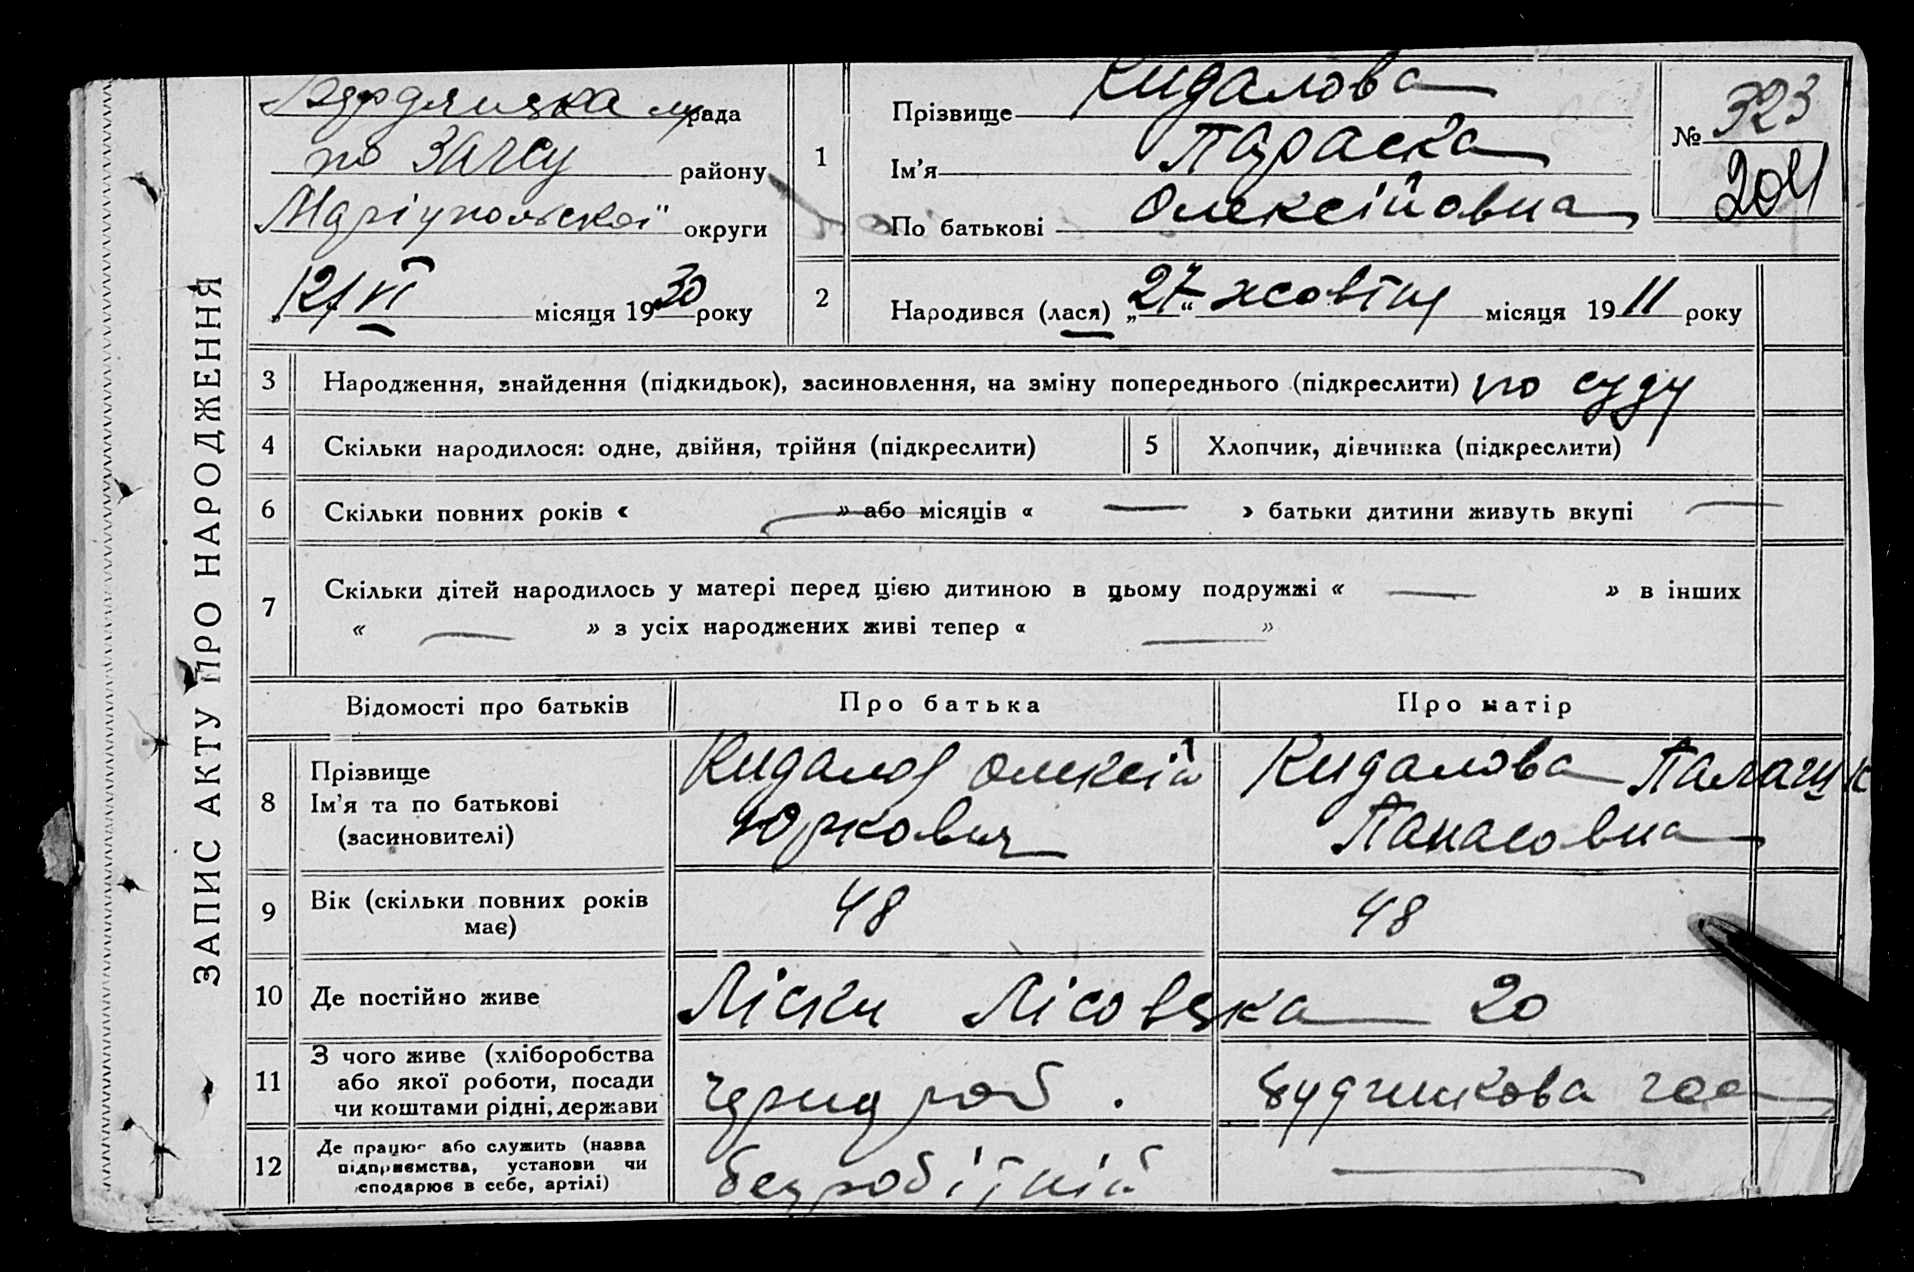 ЗАПИС АКТУ ПРО НАРОДЖЕННЯ
Бердянська м/рада
по ЗАГСу району
Маріупольської округи
„12/VI місяця 1930 року
1
Прізвище Кидалова
Ім’я Параска
По батькові Олексійовна
№ 323
204
2
Народився (лася) „27“ жовтня місяця 1911 року
3 Народження, знайдення (підкидьок), засиновлення, на зміну попереднього (підкреслити) по суду
4 Скільки народилося: одне, двійня, трійня (підкреслити) 5 Хлопчик, дівчинка (підкреслити)
6 Скільки повних років « — » або місяців « — » батьки дитини живуть вкупі —
7 Скільки дітей народилось у матері перед цією дитиною в цьому подружжі « — » в інших
« — » з усіх народжених живі тепер « — »
Відомості про батьків Про батька Про матір
8 Прізвище
Ім’я та по батькові
(засиновителі)
Кидалов Олексій
Юркович
Кидалова Палаги
Панасовна
9 Вік (скільки повних років
має)
48
48
10 Де постійно живе Ліски Лісовська — 20
11 З чого живе (хліборобства
або якої роботи, посади
чи коштами рідні, держави
роб.
12 Де працює або служить (назва
підприємства, установи чи
сподарює в себе, артілі)
безробітній
—